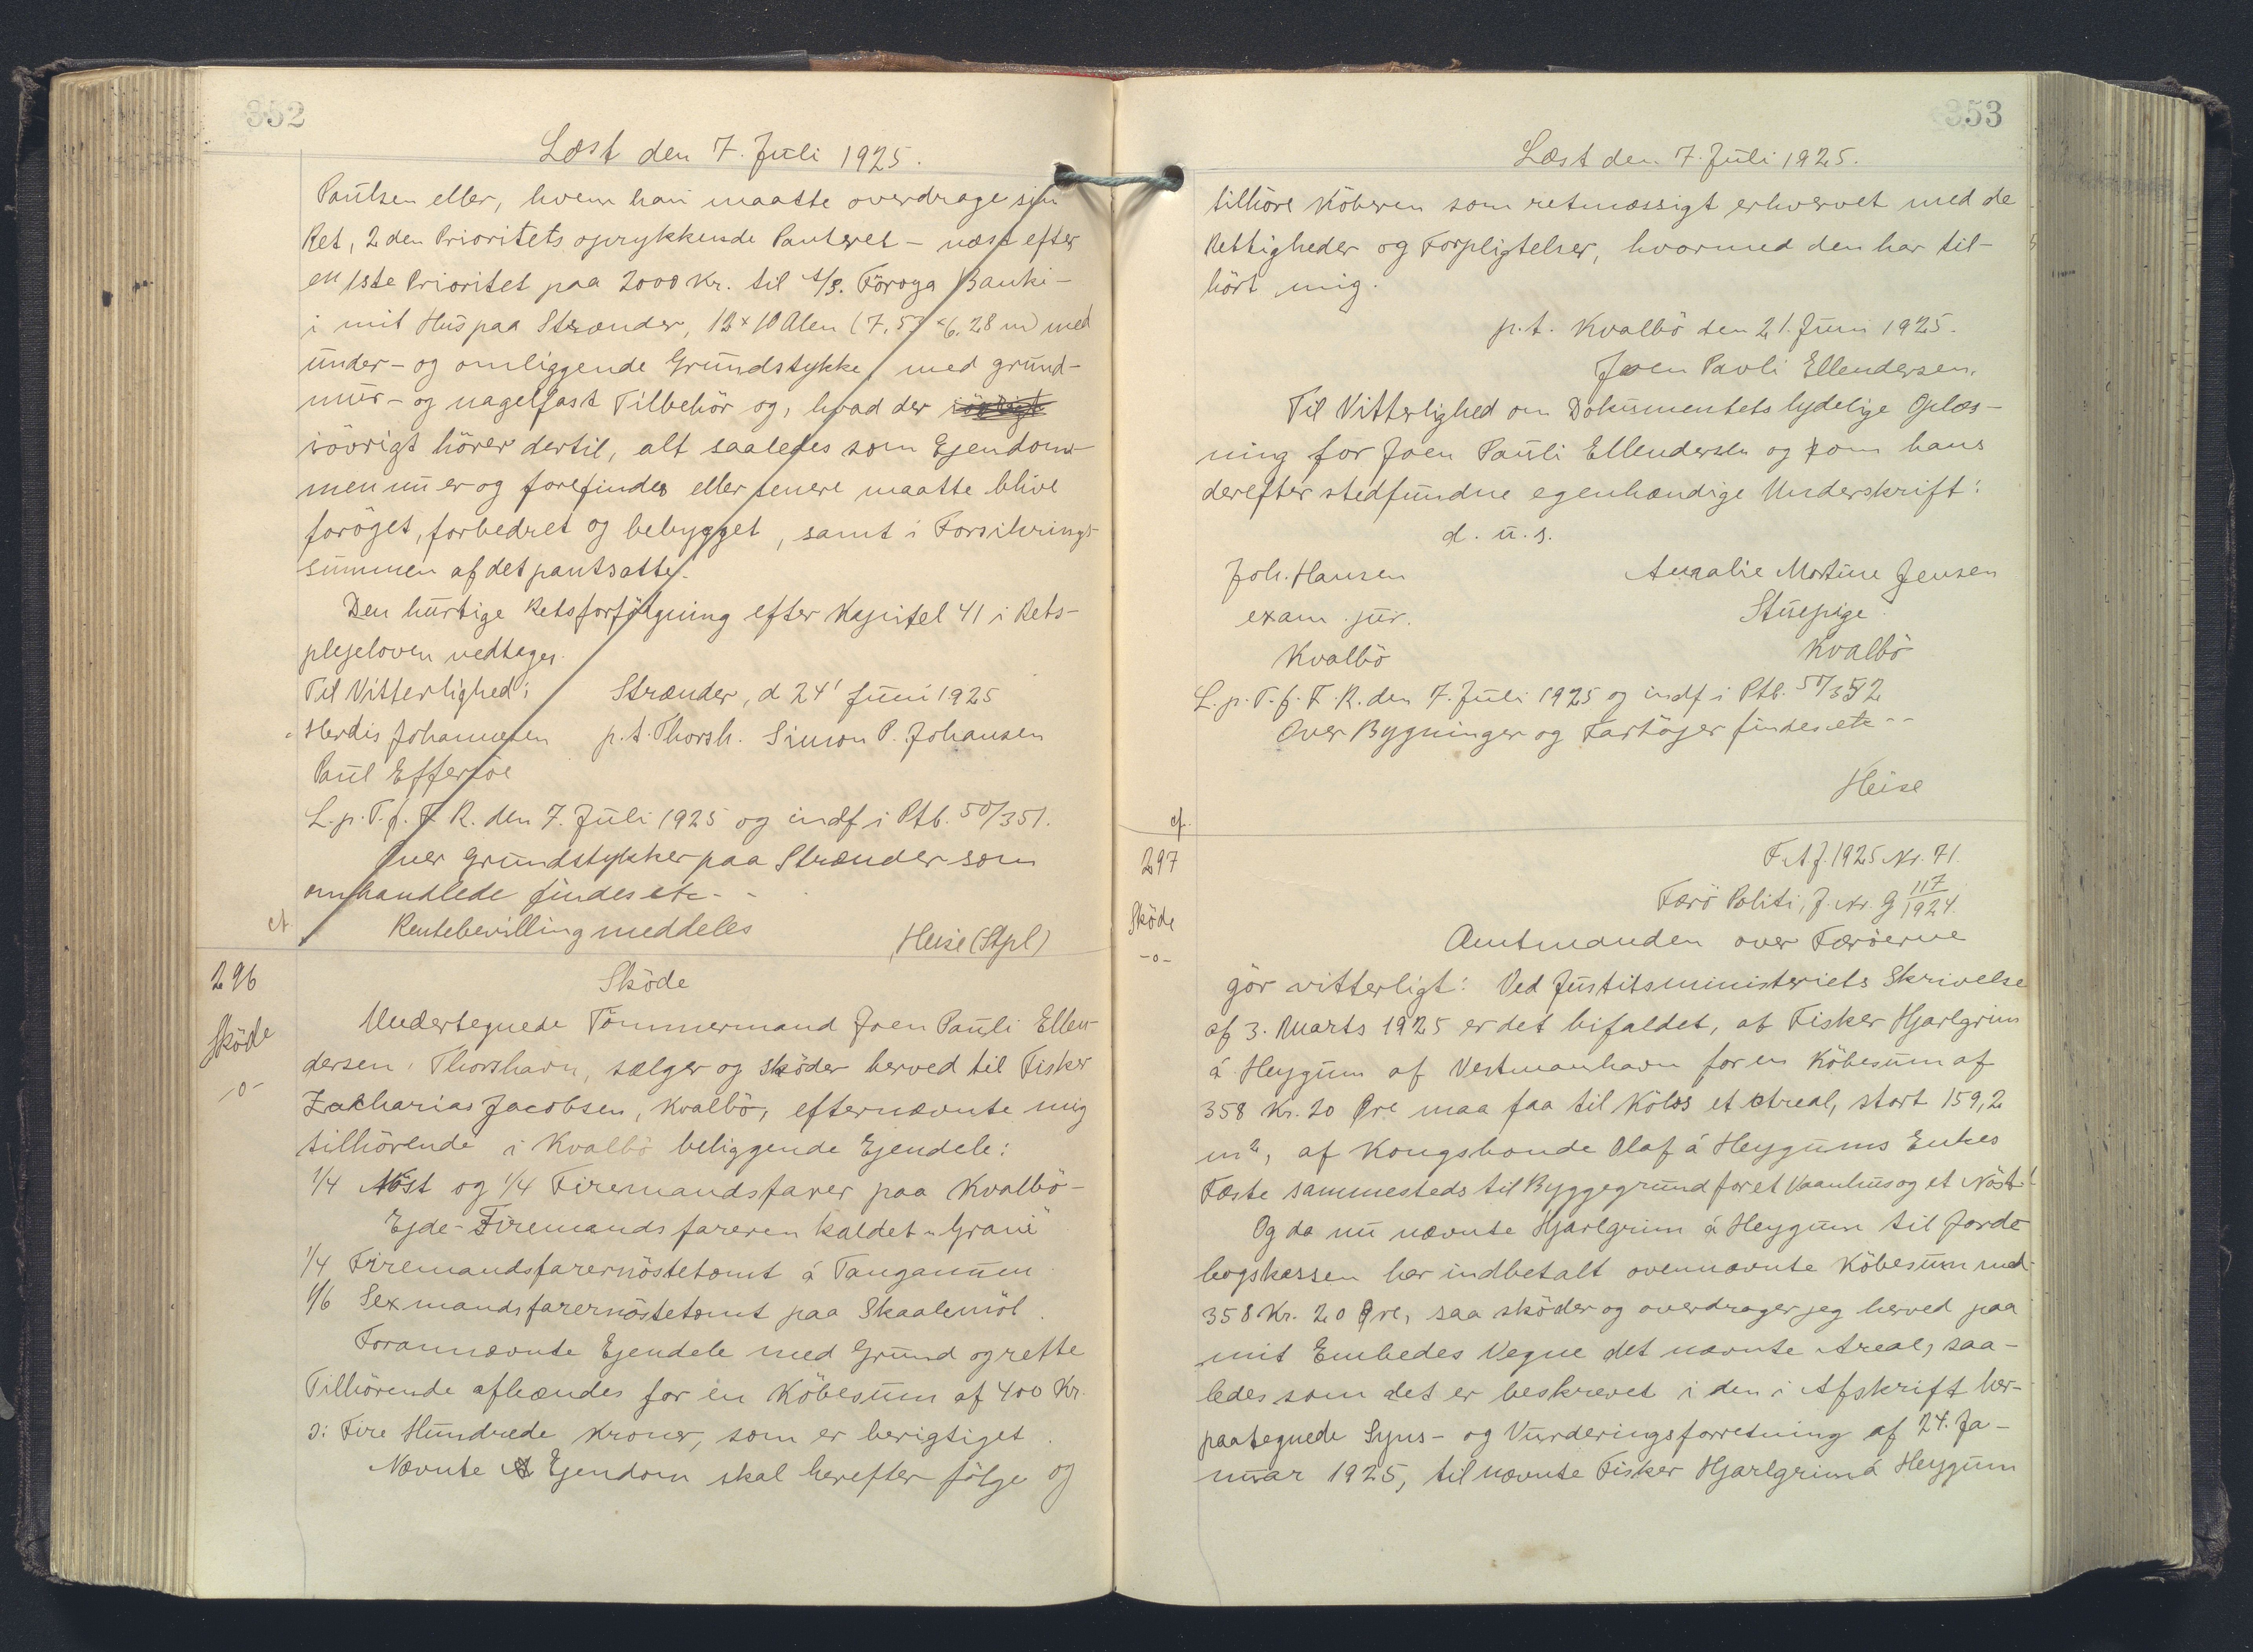 352
Læst den 7. Juli 1925.
Paulsen eller, hvem han maatte overdrage sin
Ret, 2den Prioritets oprykkende Panteret – næst efter
en 1ste Prioritet paa 2000 Kr. til A/S. Föroya Banki –
i mit Hus paa Strænder, 12 x 10 Alen (7,53 x 6.28 m) med
under- og omliggende Grundstykke, med grund-
mur- og nagelfast Tilbehör og, hvad der iövrigt
iövrigt hörer dertil, alt saaledes som Ejendom-
men nu er og forefindes eller senere maatte blive
foröget, forbedret og bebygget, samt i Forsikrings-
summen af det pantsatte.
Den hurtige Retsforfölgning efter Kapitel 41 i Rets-
plejeloven vedtages.
Til Vitterlighed: Strænder, d 24' Juni 1925
Herdis Johannesen p.t. Thorsh. Simon P. Johansen
Paul Effersöe
L.p.T.f.F.R. den 7. Juli 1925 og indf i Ptb. 50/351.
Over Grundstykker paa Strænder som
omhandlede findes etc - -
Rentebevilling meddeles Heise (Stpl)
296
Sköde
-o-
Sköde
Undertegnede Tömmermand Joen Pauli Ellen-
dersen, Thorshavn, sælger og sköder herved til Fisker
Zacharias Jacobsen, Kvalbö, efternævnte mig
tilhörende i Kvalbö beliggende Ejendele:
1/4 Nöst og 1/4 Firemandsfarer paa Kvalbö-
Ejde - Firemandsfareren kaldet "Grani"
1/4 Firemandsfarernöstetomt á Tanganum
1/6 Sexmandsfarernöstetomt paa Skaalemöl.
Forannævnte Ejendele med Grund og rette
Tilhörende afhændes for en Köbesum af 400 Kr.
ɔ: Fire Hundrede Kroner, som er berigtiget.
Nævnte Ejendom skal herefter fölge og
353
Læst den 7. Juli 1925.
tilhöre Köberen som retmæssigt erhvervet med de
Rettigheder og Forpligtelser, hvormed den har til-
hört mig.
p.t. Kvalbö den 21. Juni 1925.
Joen Pavli Ellendersen.
Til Vitterlighed om Dokumentets lydelige Oplæs-
ning for Joen Pauli Ellendersen og om hans
derefter stedfundne egenhændige Underskrift:
d. u. s.
Joh. Hansen Amalie Martine Jensen
exam. jur. Stuepige
Kvalbö Kvalbö
L.p.T.f.F.R. den 7. Juli 1925 og indf i Ptb. 50/352
Over Bygninger og Fartöjer findes etc - -
Heise
cf.
297
Sköde
-o-
F.A.J. 1925 Nr. 71.
Færö Politi, J. Nr. G 117/1924.
Amtmanden over Færöerne
gör vitterligt: Ved Justitsministeriets Skrivelse
af 3. Marts 1925 er det bifaldet, at Fisker Hjarlgrim
á Heygum af Vestmanhavn for en Köbesum af
358 Kr. 20 Øre maa faa til Köbs et Areal, stort 159,2
m², af Kongsbonde Olaf á Heygums Enkes
Fæste sammesteds til Byggegrund for et Vaanhus og et Nöst.
Og da nu nævnte Hjarlgrim á Heygum til Jorde-
bogskassen har indbetalt ovennævnte Köbesum med
358 Kr. 20 Øre, saa sköder og overdrager jeg herved paa
mit Embedes Vegne det nævnte Areal, saa-
ledes som det er beskrevet i den i Afskrift her-
paategnede Syns- og Vurderingsforretning af 24. Ja-
nuar 1925, til nævnte Fisker Hjarlgrim á Heygum